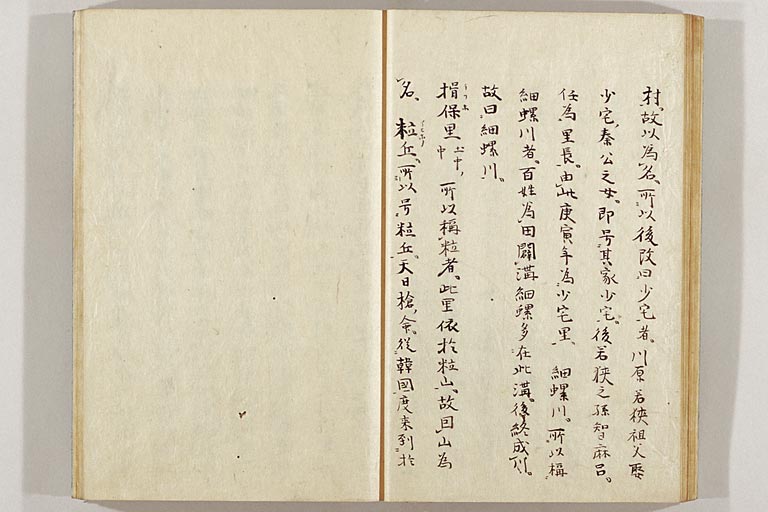 村。故以為名。所以後改曰少宅者。川原若狭祖父娶
少宅秦公之女。即号其家少宅。後若狭之孫智麻呂。
任為里長。由此庚寅年為少宅里。細螺川。所以稱
細螺川者。百姓為田闢溝。細螺多在此溝。後終成川。
故曰細螺川。
揖保里 土中々 所以稱粒者。此里依於粒山。故因山為
名。粒丘。所以号粒丘。天日槍命。從韓國度来到於